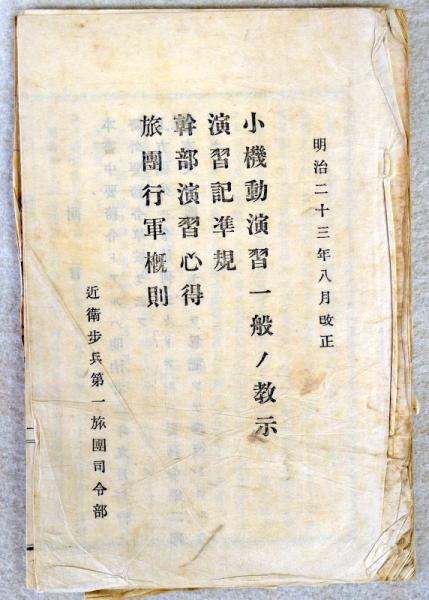 明治二十三年八月改正
小機動演習一般ノ教示
演習記準規
幹部演習心得
旅團行軍概則
近衛步兵第一旅團司令部